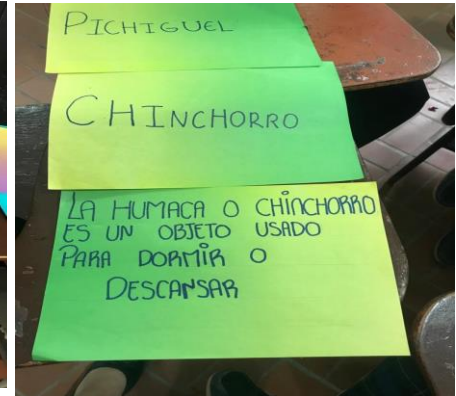 PICHIGUEL
CHINCHORRO
LA HUMACA O CHINCHORRO
ES UN OBJETO USADO
PARA DORMIR O
DESCANSAR